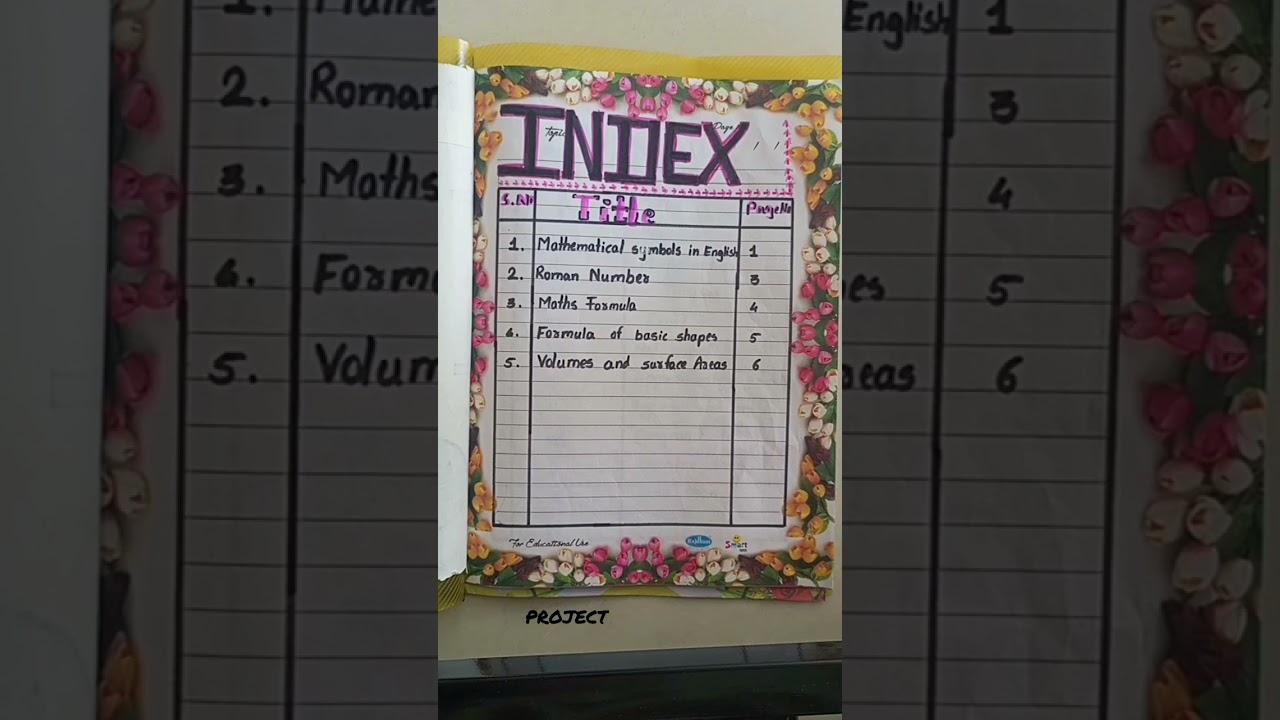 INDEX
Topic Page
S.No Title Page No
1. Mathematical symbols in English 1
2. Roman Number 3
3. Maths Formula 4
4. Formula of basic shapes 5
5. Volumes and surface Areas 6
For Educational Use Smart
PROJECT